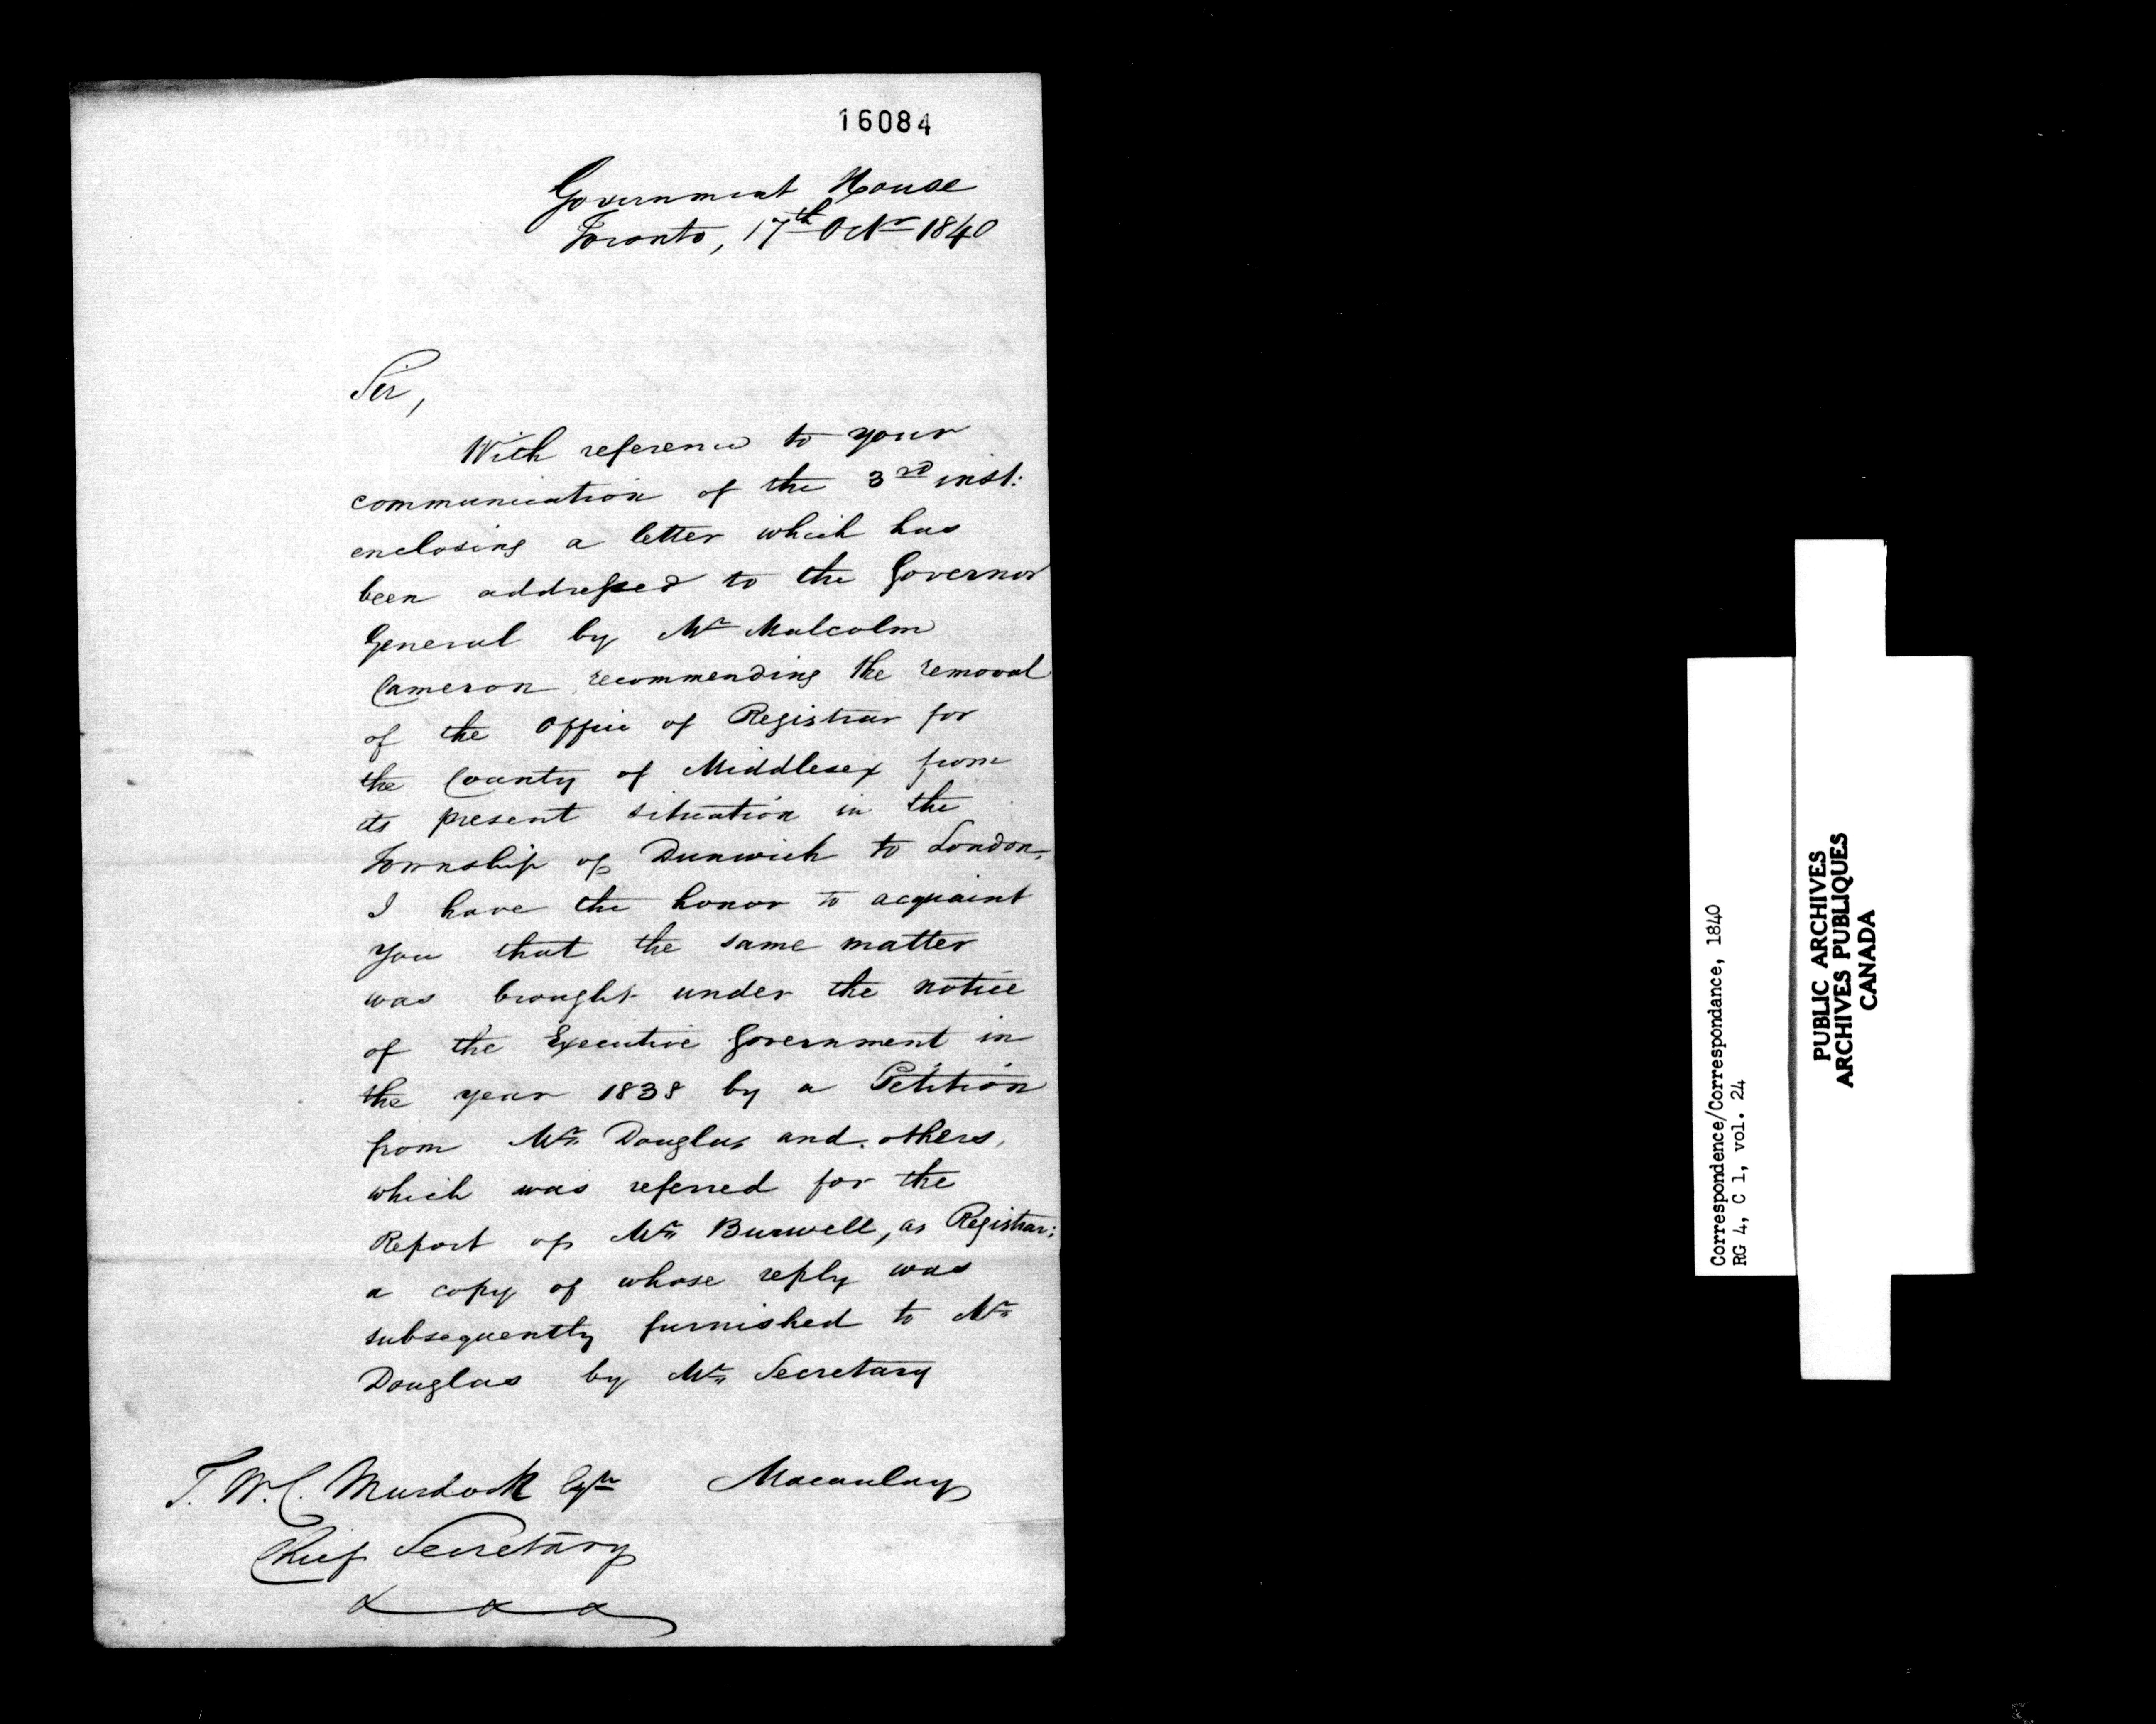 16084
Government House
Toronto, 17th Octr 1840
Sir,
With reference to your
communication of the 3rd inst:
enclosing a letter which has
been addressed to the Governor
General by Mr Malcolm
Cameron recommending the removal
of the Office of Registrar for
the County of Middlesex from
its present situation in the
Township of Dunwich to London,
I have the honor to acquaint
you that the same matter
was brought under the notice
of the Executive Government in
the year 1838 by a Petition
from Mr Douglas and others,
which was referred for the
Report of Mr Burwell, as Registrar;
a copy of whose reply was
subsequently furnished to Mr
Douglas by Mr Secretary
Macaulay
T. W. C. Murdock Esqre
Chief Secretary
& & &
Correspondence/Correspondance, 1840
RG 4, C 1, vol. 24
PUBLIC ARCHIVES
ARCHIVES PUBLIQUES
CANADA